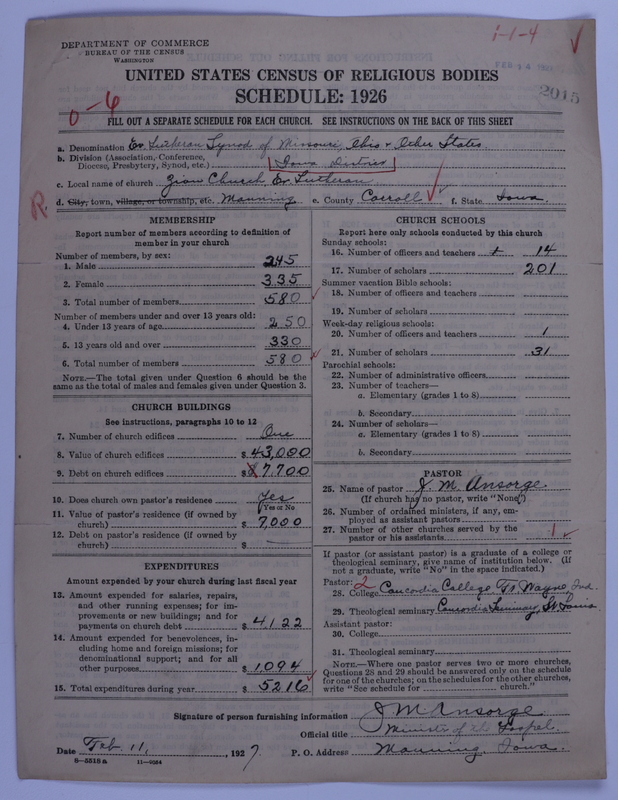 DEPARTMENT OF COMMERCE
BUREAU OF THE CENSUS
WASHINGTON
1-1-4
FEB 14 1927
2015
UNITED STATES CENSUS OF RELIGIOUS BODIES
SCHEDULE: 1926
0-6
FILL OUT A SEPARATE SCHEDULE FOR EACH CHURCH. SEE INSTRUCTIONS ON THE BACK OF THIS SHEET
a. Denomination Ev. Lutheran Synod of Missouri, Ohio & Other States
b. Division (Association, Conference, Diocese, Presbytery, Synod, etc.) Iowa District
c. Local name of church Zion Church, Ev. Lutheran
R
d. City, town, village, or township, etc. Manning e. County Carroll f. State Iowa
MEMBERSHIP
Report number of members according to definition of
member in your church
Number of members, by sex:
1. Male 245
2. Female 335
3. Total number of members 580
Number of members under and over 13 years old:
4. Under 13 years of age 250
5. 13 years old and over 330
6. Total number of members 580
NOTE.—The total given under Question 6 should be the
same as the total of males and females given under Question 3.
CHURCH BUILDINGS
See instructions, paragraphs 10 to 12
7. Number of church edifices One
8. Value of church edifices $43,000
9. Debt on church edifices $7,700
10. Does church own pastor's residence Yes
(Yes or No)
11. Value of pastor's residence (if owned by
church) $7,000
12. Debt on pastor's residence (if owned by
church) $
EXPENDITURES
Amount expended by your church during last fiscal year
13. Amount expended for salaries, repairs,
and other running expenses; for im-
provements or new buildings; and for
payments on church debt $4,122
14. Amount expended for benevolences, in-
cluding home and foreign missions; for
denominational support; and for all
other purposes $1,094
15. Total expenditures during year $5216
CHURCH SCHOOLS
Report here only schools conducted by this church
Sunday schools:
16. Number of officers and teachers 14
17. Number of scholars 201
Summer vacation Bible schools:
18. Number of officers and teachers
19. Number of scholars
Week-day religious schools:
20. Number of officers and teachers 1
21. Number of scholars 31
Parochial schools:
22. Number of administrative officers
23. Number of teachers—
a. Elementary (grades 1 to 8)
b. Secondary
24. Number of scholars—
a. Elementary (grades 1 to 8)
b. Secondary
PASTOR
25. Name of pastor J. M. Ansorge
(If church has no pastor, write "None")
26. Number of ordained ministers, if any, em-
ployed as assistant pastors
27. Number of other churches served by the
pastor or his assistants 1
If pastor (or assistant pastor) is a graduate of a college or
theological seminary, give name of institution below. (If
not a graduate, write "No" in the space indicated.)
Pastor: 2
28. College Concordia College Ft Wayne Ind.
29. Theological seminary Concordia Seminary, St. Louis
Assistant pastor:
30. College
31. Theological seminary
NOTE.—Where one pastor serves two or more churches,
Questions 28 and 29 should be answered only on the schedule
for one of the churches; on the schedules for the other churches,
write "See schedule for church."
Signature of person furnishing information J M Ansorge
Official title Minister of the Gospel
Date Feb. 11, 1927. P. O. Address Manning, Iowa.
8—5518a 11—9264